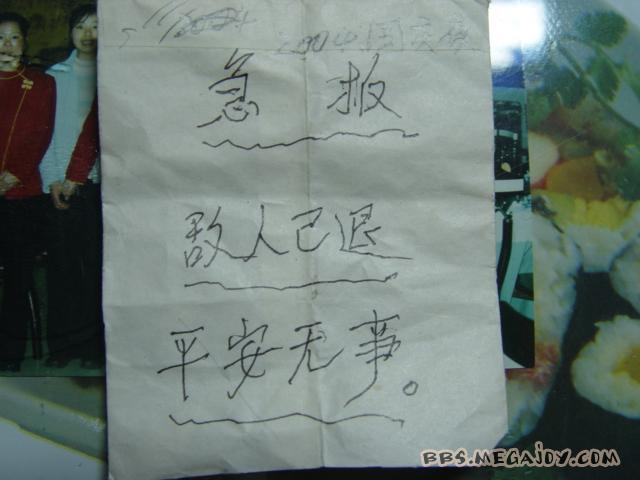 2004国庆
急报
敌人已退
平安无事。
BBS.MEGAJOY.COM